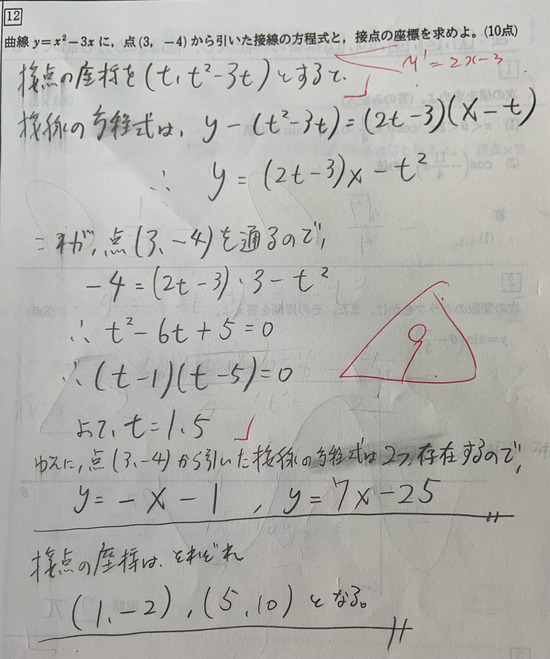 12
曲線 y=x²-3x に, 点(3, -4) から引いた接線の方程式と, 接点の座標を求めよ。(10点)
y'=2x-3
接点の座標を(t, t²-3t)とすると、
接線の方程式は, y-(t²-3t)=(2t-3)(x-t)
∴ y=(2t-3)x-t²
これが, 点(3, -4)を通るので,
-4=(2t-3)・3-t²
∴ t²-6t+5=0
∴ (t-1)(t-5)=0
9
よって, t=1, 5
ゆえに, 点(3, -4)から引いた接線の方程式は2つ存在するので,
y=-x-1, y=7x-25
接点の座標は, それぞれ
(1, -2), (5, 10)となる。